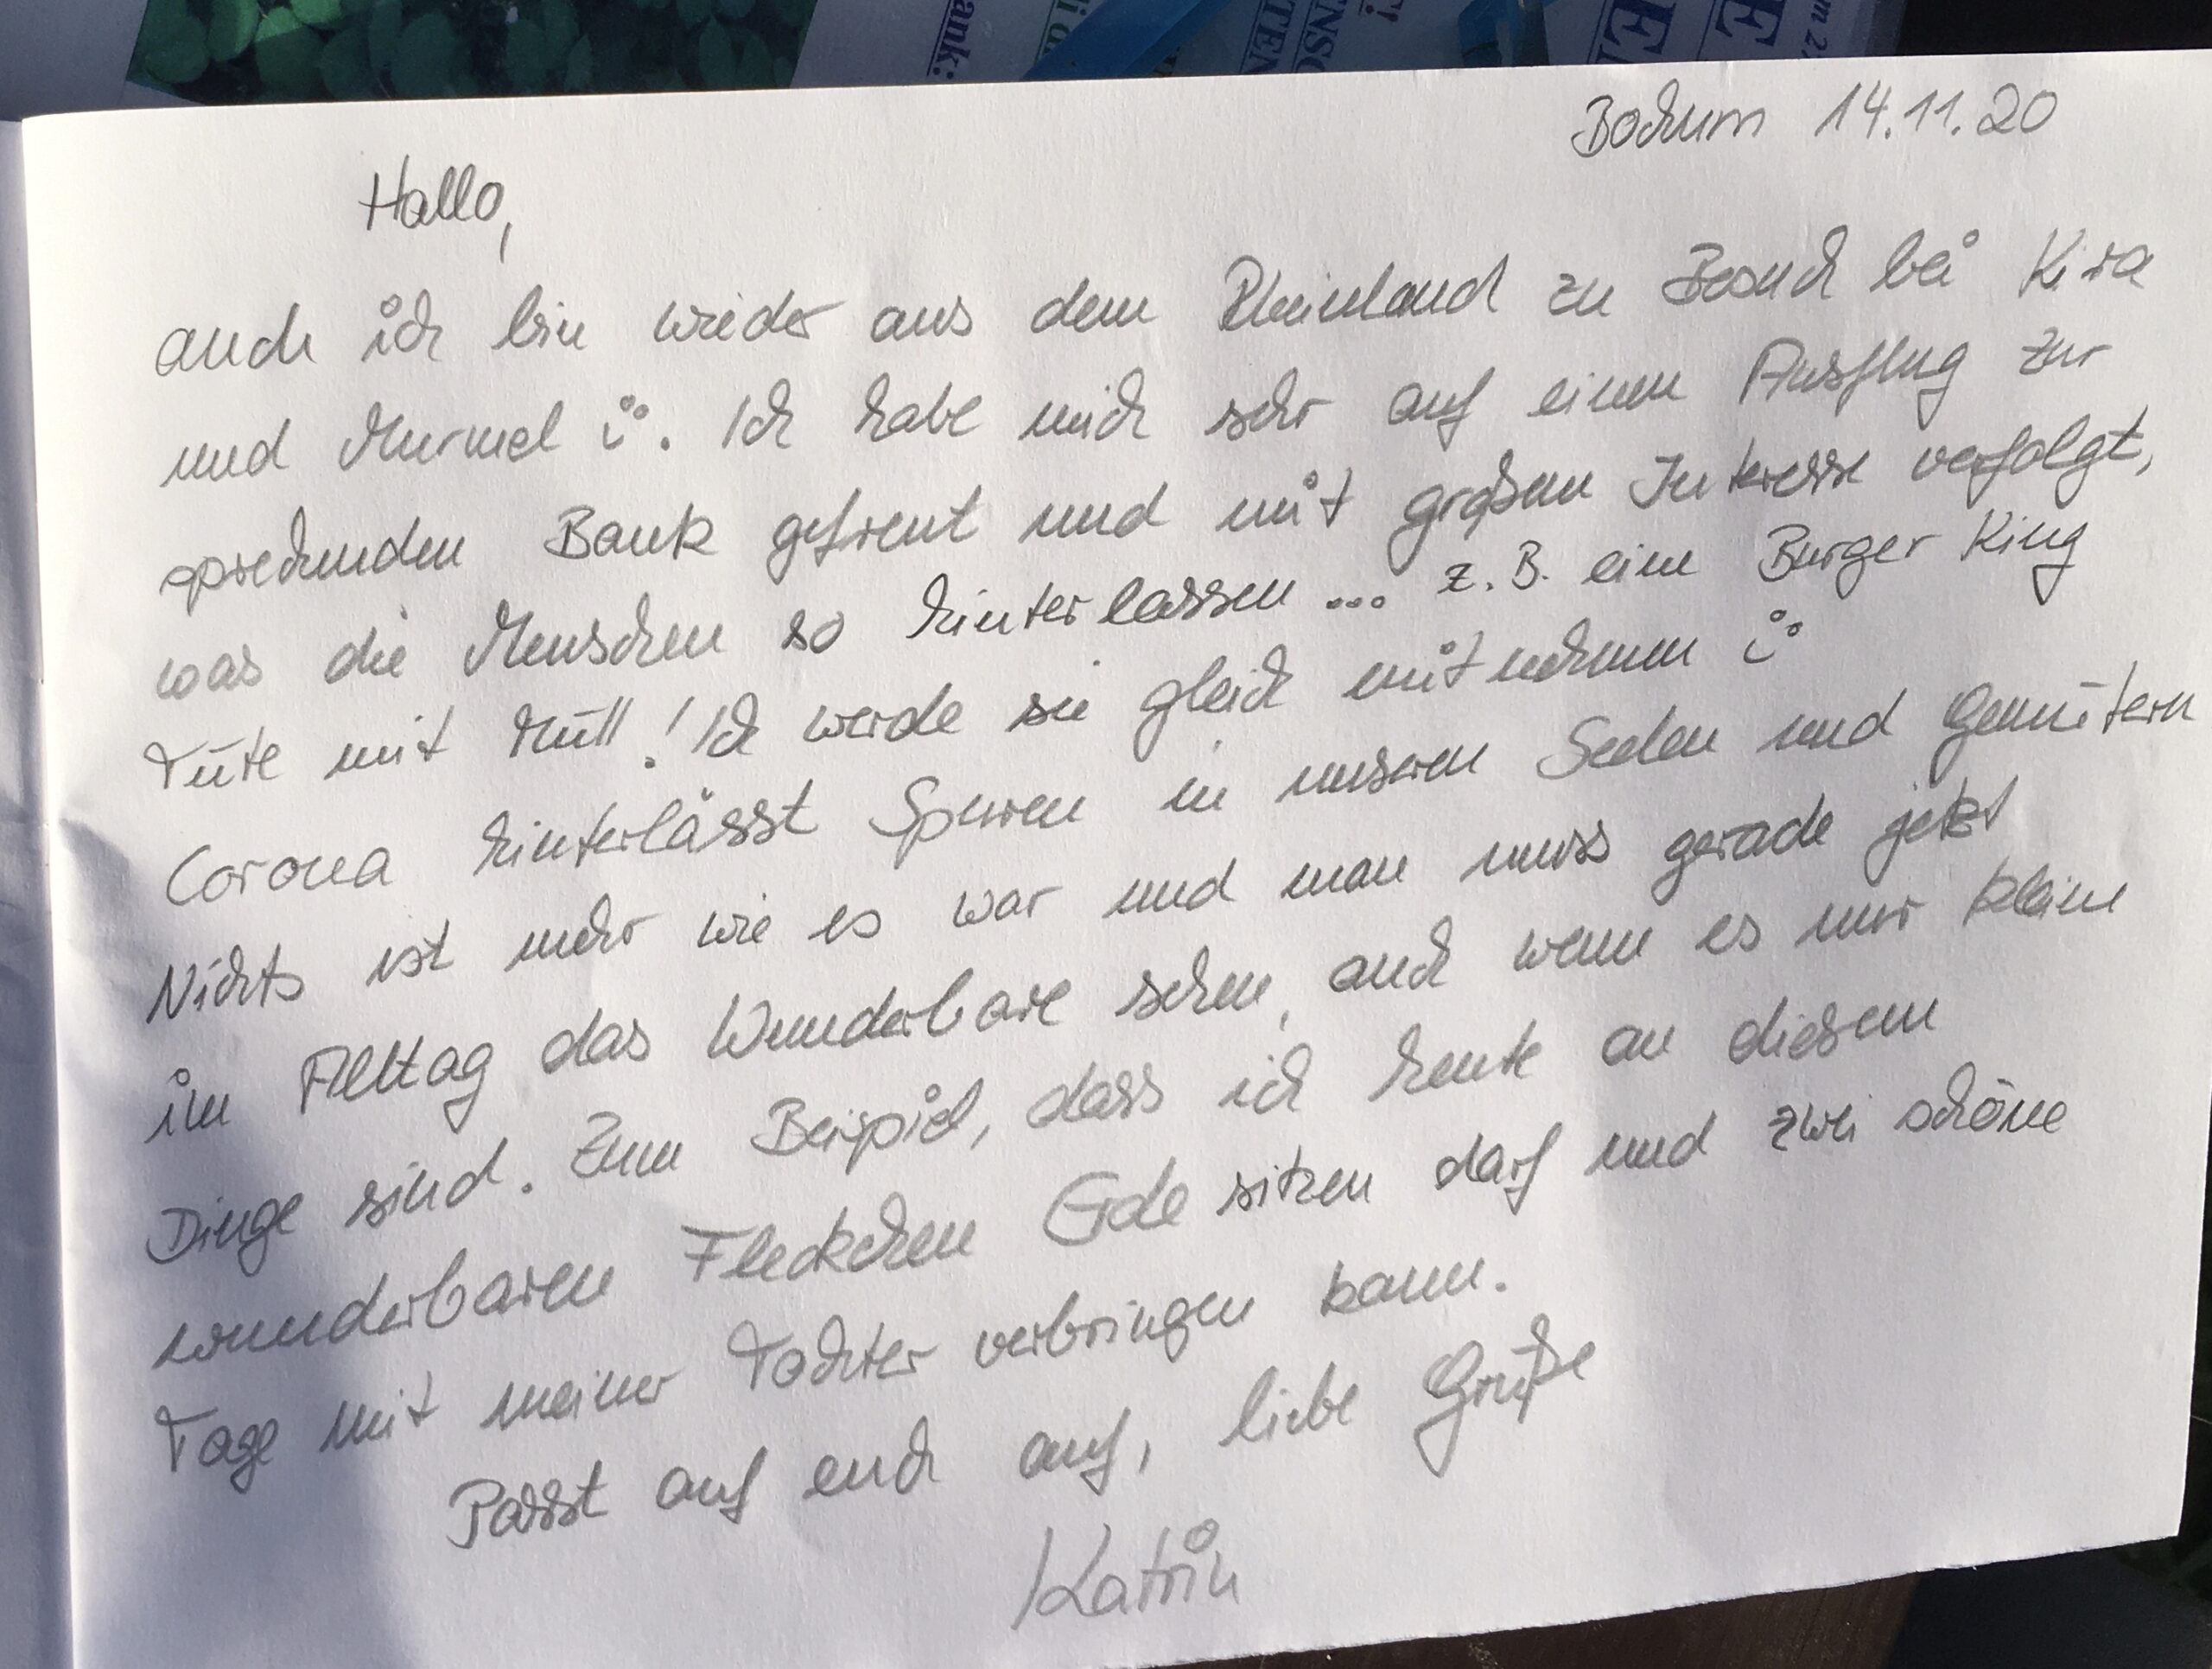 ank:
Bochum 14.11.20
Hallo,
auch ich bin wieder aus dem Rheinland zu Besuch bei Kira
und Murmel ü. Ich habe mich sehr auf einen Ausflug zur
sprechenden Bank gefreut und mit großem Interesse verfolgt,
was die Menschen so hinterlassen... z.B. eine Burger King
Tüte mit Müll! Ich werde sie gleich mitnehmen ü
Corona hinterlässt Spuren in unseren Seelen und Gemütern
Nichts ist mehr wie es war und man muss gerade jetzt
im Alltag das Wunderbare sehen, auch wenn es nur kleine
Dinge sind. Zum Beispiel, dass ich heute an diesem
wunderbaren Fleckchen Erde sitzen darf und zwei schöne
Tage mit meiner Tochter verbringen kann.
Passt auf euch auf, liebe Grüße
Katrin